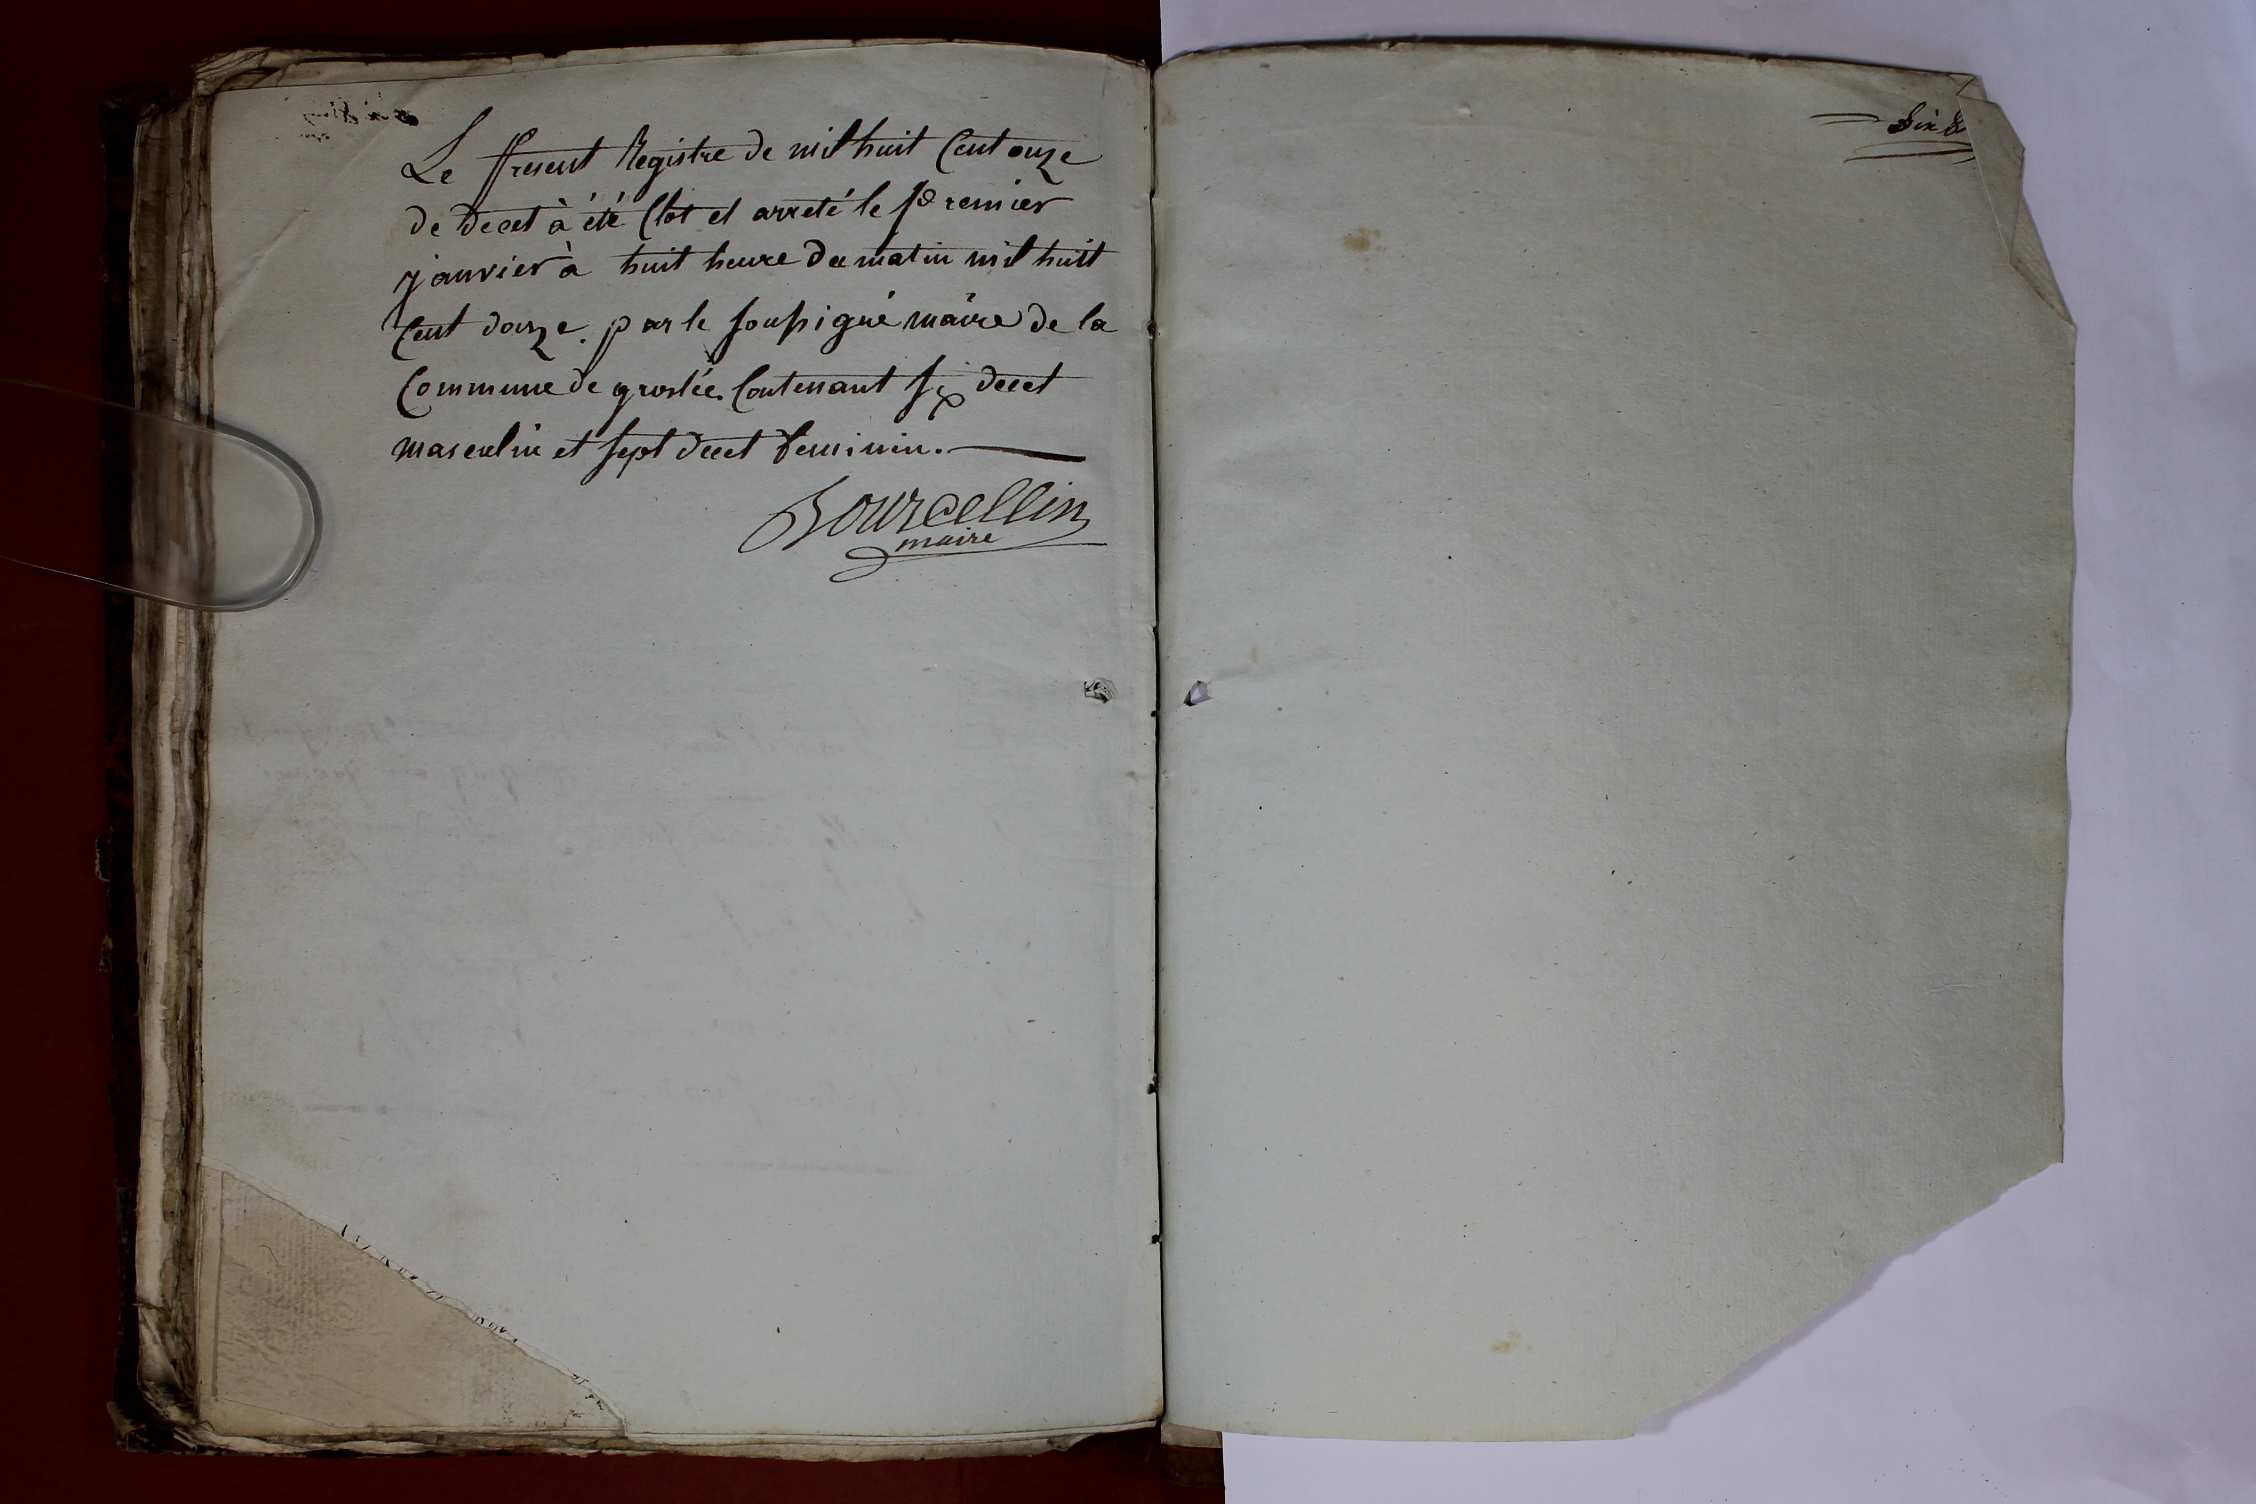 Le present Registre de mil huit Cent onze
de decet à été Clot et arreté le premier
janvier à huit heure du matin mil huit
Cent douze. par le soussigné maire de la
Commune de groslée Contenant six decet
masculin et sept decet feminin.
Bourcellin
maire